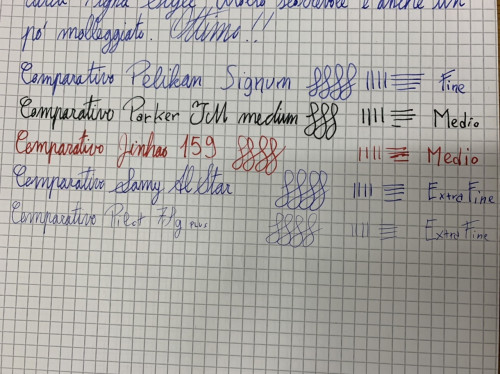 carta Magna esige, molto scorrevole e anche un
pò molleggiato. Ottimo!!
Comparativo Pelikan Signum Fine
Comparativo Parker IM medium Medio
Comparativo Jinhao 159 Medio
Comparativo Samy Al Star Extra Fine
Comparativo Pilot 78g Plus Extra Fine